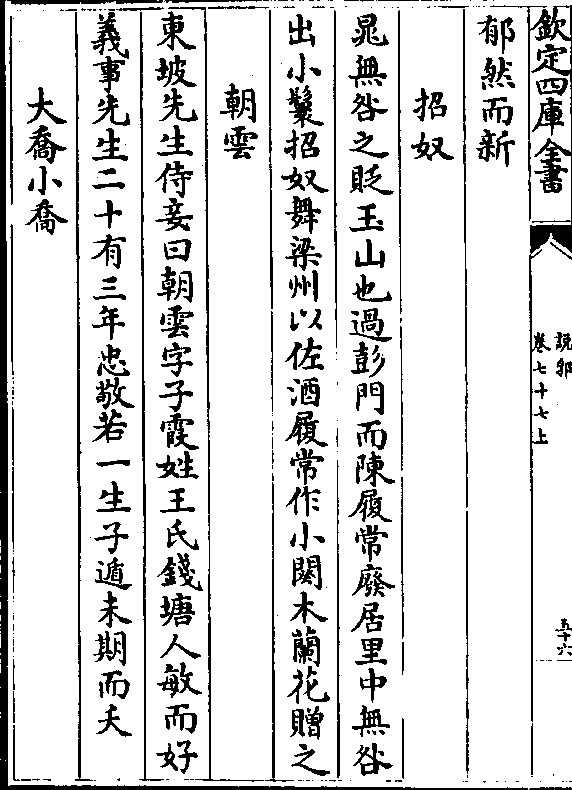 欽定四庫全書
說郛
卷七十七上
五十六
郁然而新
招奴
晁無咎之貶玉山也過彭門而陳履常廢居里中無咎
出小鬟招奴舞梁州以佐酒履常作小闋木蘭花贈之
朝雲
東坡先生侍妾曰朝雲字子霞姓王氏錢塘人敏而好
義事先生二十有三年忠敬若一生子遁未期而夭
大喬小喬